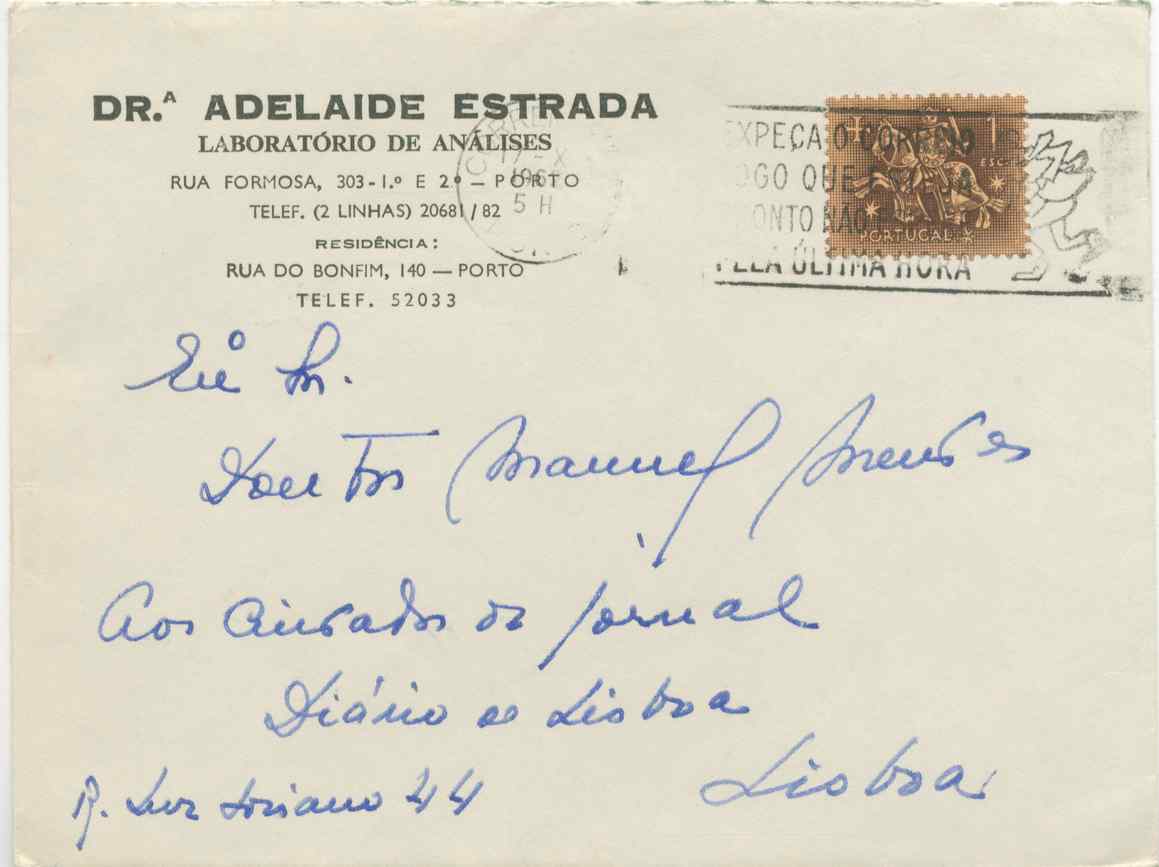 DR.ᴬ ADELAIDE ESTRADA
LABORATÓRIO DE ANÁLISES
RUA FORMOSA, 303-1.º E 2.º — PORTO
TELEF. (2 LINHAS) 20681/82
RESIDÊNCIA:
RUA DO BONFIM, 140 — PORTO
TELEF. 52033
17-X
196
5 H
EXPEÇA O CORREIO
OGO QUE
ONTO NÃO
PELA ÚLTIMA HORA
1
ESC.
PORTUGAL
Sr.
Doutor Manuel Mendes
Aos cuidados do jornal
Diário de Lisboa
R. Luz Soriano 44
Lisboa